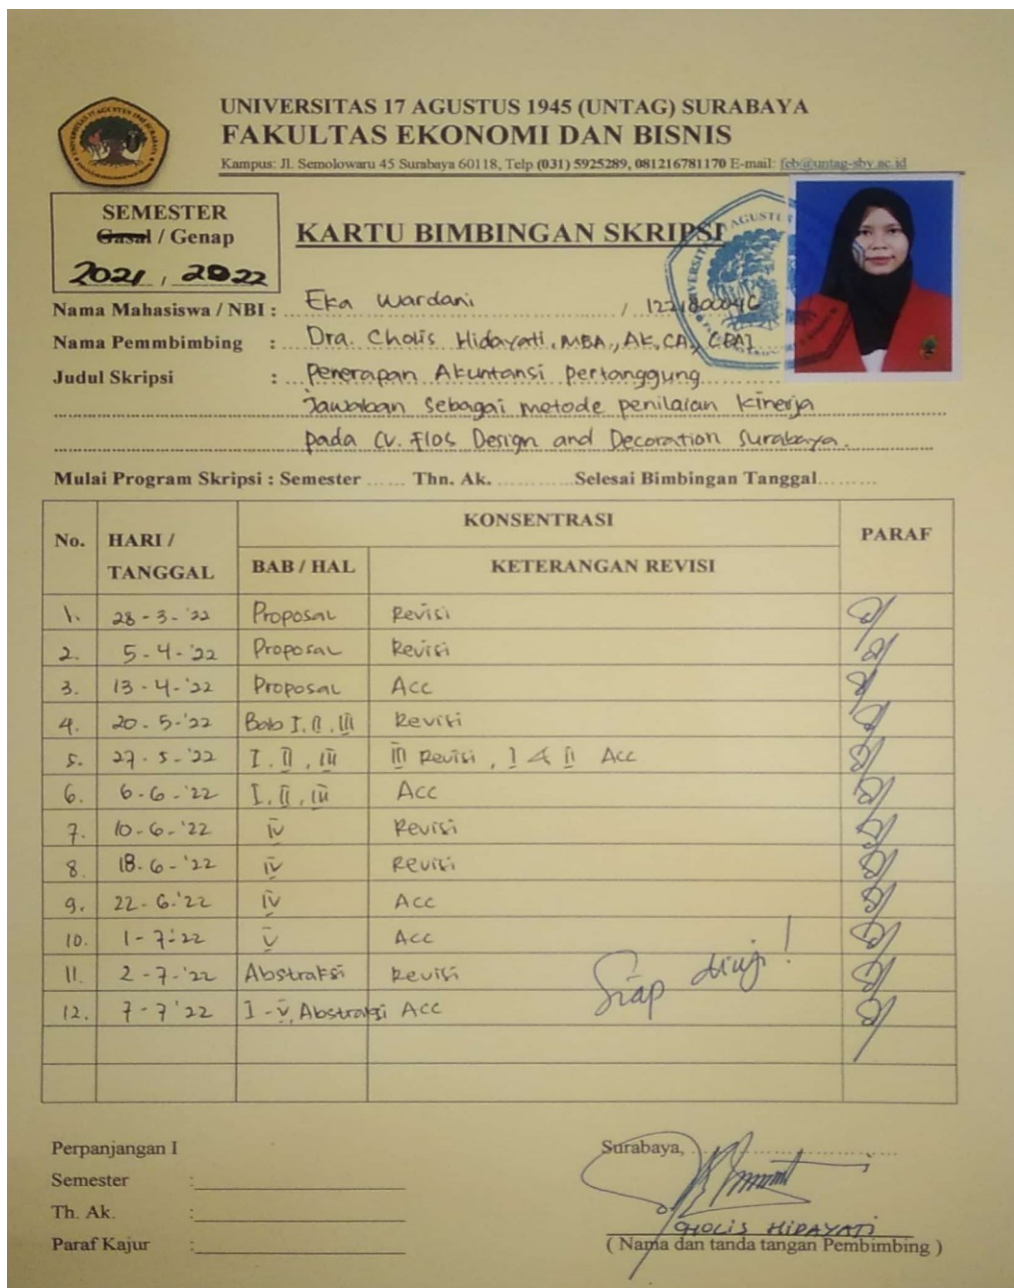 UNIVERSITAS 17 AGUSTUS 1945 (UNTAG) SURABAYA
FAKULTAS EKONOMI DAN BISNIS
Kampus: Jl. Semolowaru 45 Surabaya 60118, Telp (031) 5925289, 081216781170 E-mail: feb@untag-sby.ac.id
SEMESTER
Gasal / Genap
2021 / 2022
KARTU BIMBINGAN SKRIPSI
Nama Mahasiswa / NBI : Eka Wardani /
Nama Pemmbimbing : Dra. Cholis Hidayati, MBA., AK, CA.,
Judul Skripsi : Penerapan Akuntansi pertanggung
Jawaban Sebagai metode penilaian Kinerja
pada CV. Flos Design and Decoration Surabaya.
Mulai Program Skripsi : Semester ...... Thn. Ak. ........... Selesai Bimbingan Tanggal.........
No. HARI / TANGGAL KONSENTRASI PARAF
BAB / HAL KETERANGAN REVISI
1. 28 - 3 - '22 Proposal Revisi
2. 5 - 4 - '22 Proposal Revisi
3. 13 - 4 - '22 Proposal Acc
4. 20 - 5 - '22 Bab I, II, III Revisi
5. 27 - 5 - '22 I, II, III III Revisi, I & II Acc
6. 6 - 6 - '22 I, II, III Acc
7. 10 - 6 - '22 IV Revisi
8. 18 - 6 - '22 IV Revisi
9. 22 - 6 - '22 IV Acc
10. 1 - 7 - 22 V Acc
11. 2 - 7 - '22 Abstraksi Revisi
12. 7 - 7 '22 I - V, Abstraksi Acc
Siap diuji!
Perpanjangan I
Semester :
Th. Ak. :
Paraf Kajur :
Surabaya, ..............................
CHOLIS HIDAYATI
( Nama dan tanda tangan Pembimbing )